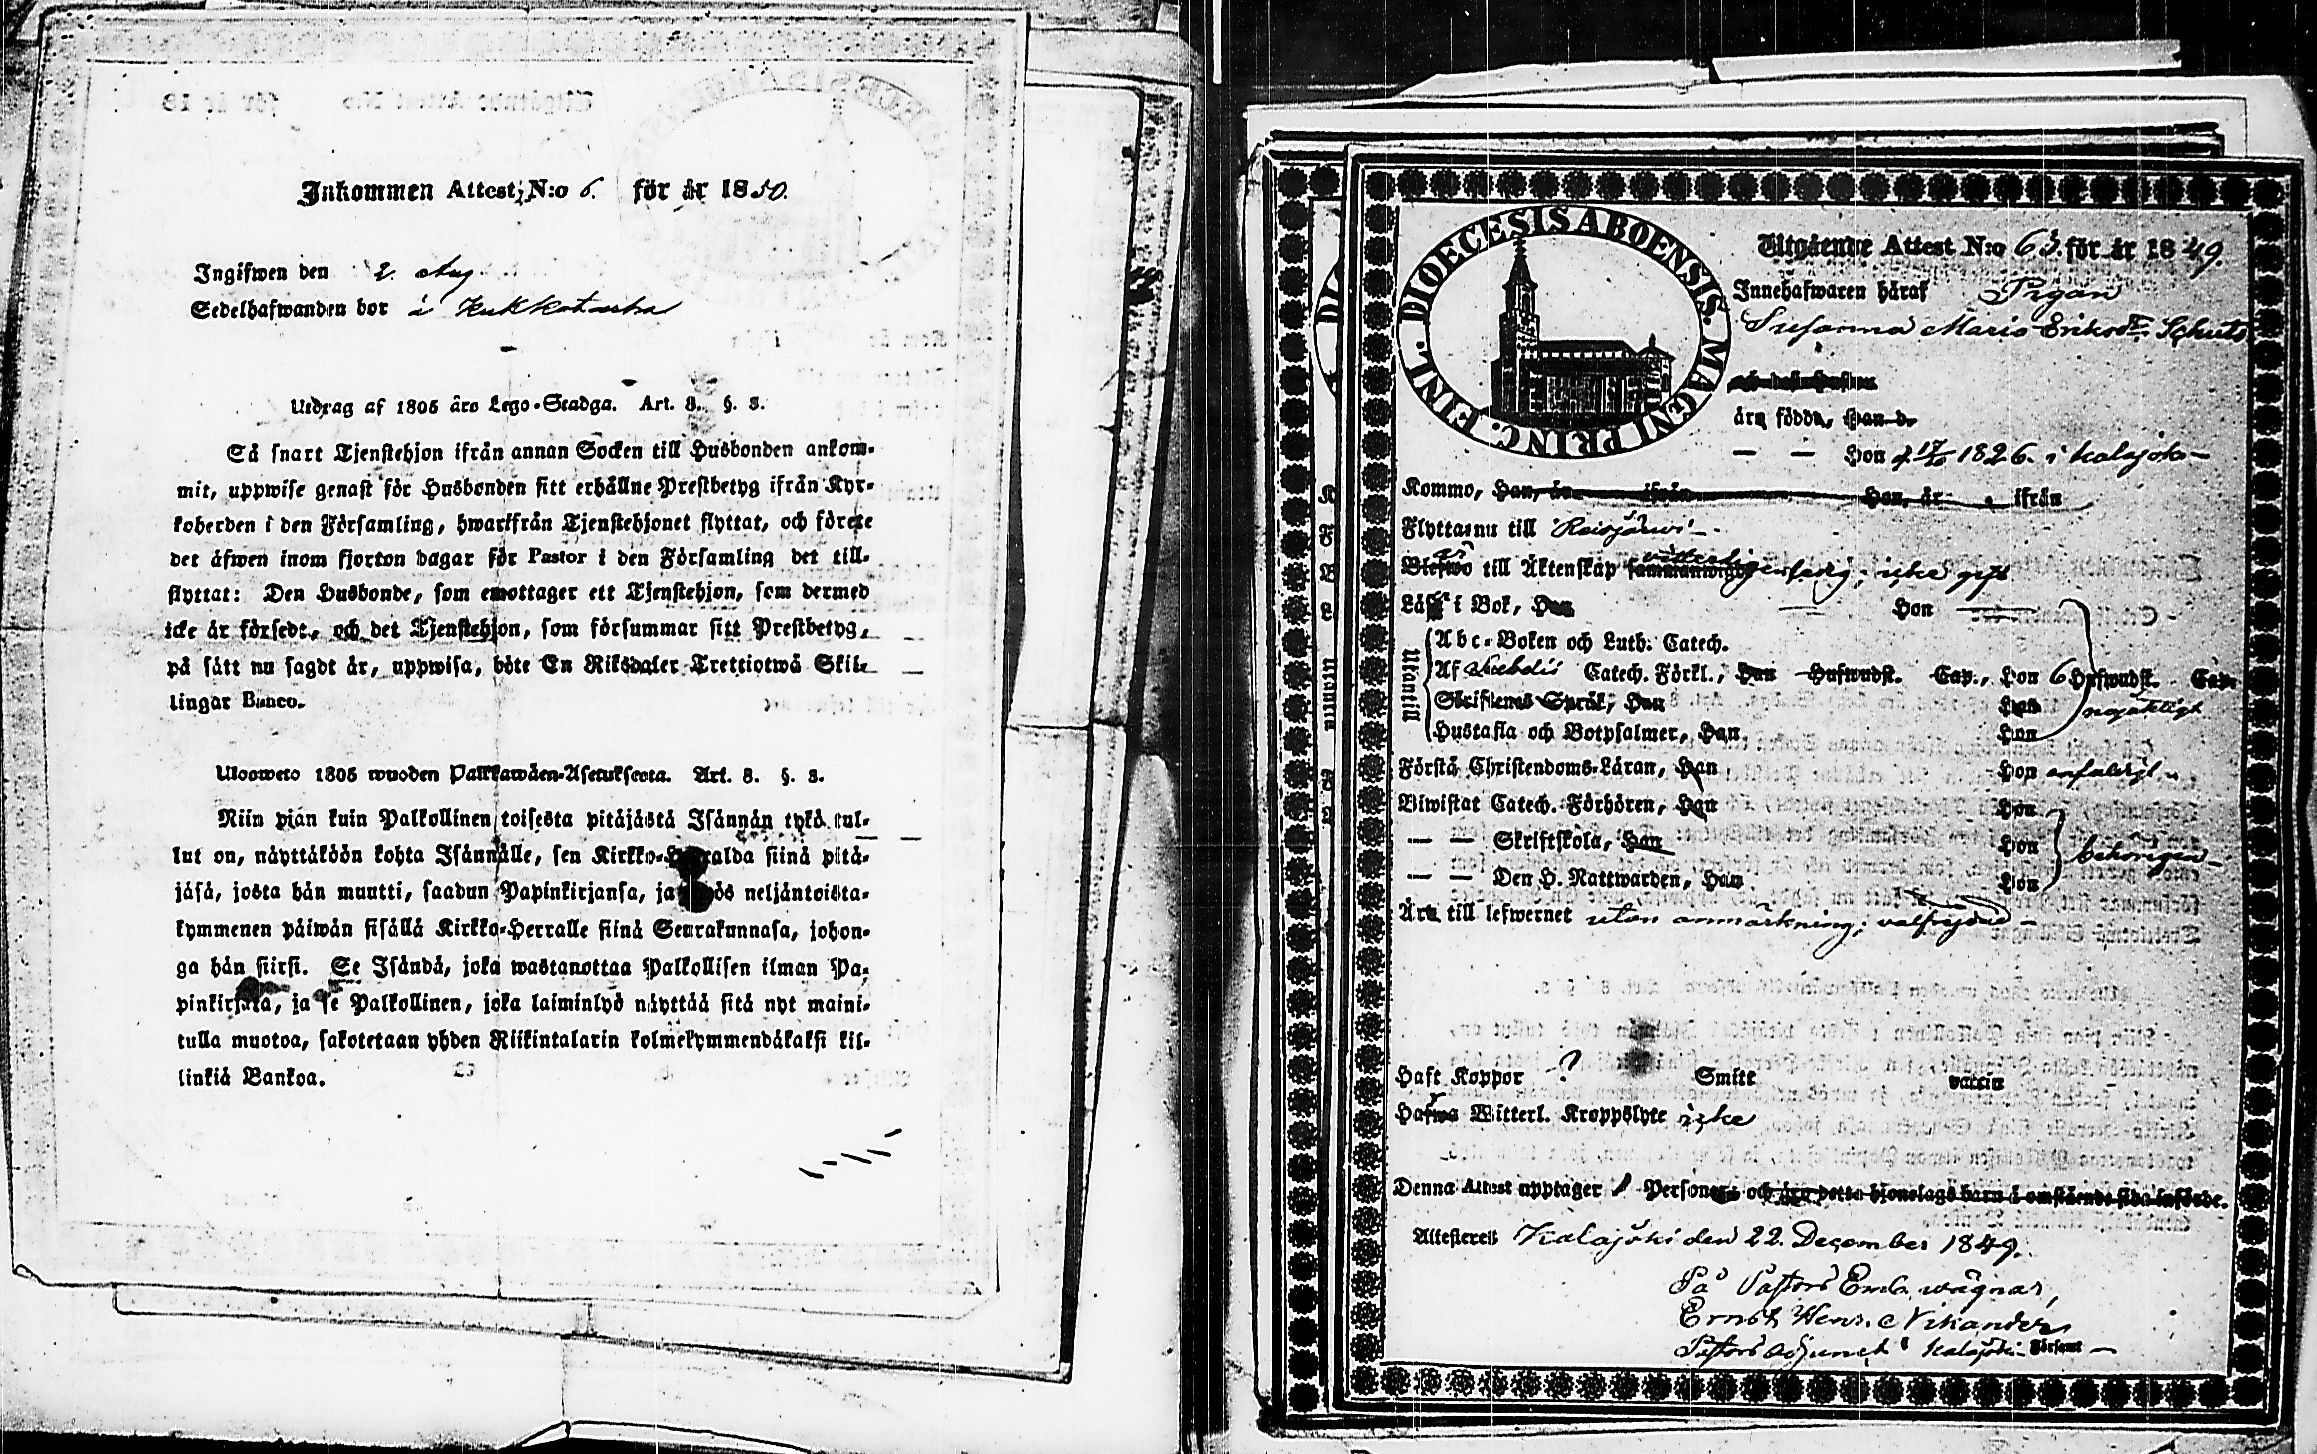 Inkommen Attest, N:o 6. för år 1850.
Ingifwen den 2. Aug.
Sedelhafwanden bor i
Utdrag af 1805 års Lego-Stadga. Art. 3. §. 3.
Så snart Tjenstehjon ifrån annan Socken till Husbonden ankom-
mit, uppwise genast för Husbonden sitt erhållne Prestbetyg ifrån Kyr-
koherden i den Församling, hwarifrån Tjenstehjonet flyttat, och förete
det äfwen inom fjorton dagar för Pastor i den Församling det till-
flyttat: Den Husbonde, som emottager ett Tjenstehjon, som dermed
icke är försedt, och det Tjenstehjon, som försummar sitt Prestbetyg,
på sätt nu sagdt är, uppwisa, böte En Riksdaler Trettiotwå Skil-
lingar Banco.
Ulosweto 1805 wuoden Palkkawäen-Asetuksesta. Art. 3. §. 3.
Niin pian kuin Palkollinen toisesta pitäjästä Isännän tykö tul-
lut on, näyttäköön kohta Isännälle, sen Kirkko-Herralda siinä pitä-
jäsä, josta hän muutti, saadun Papinkirjansa, ja myös neljäntoista-
kymmenen päiwän sisällä Kirkko-Herralle siinä Seurakunnasa, johon-
ga hän siirsi. Se Isändä, joka wastanottaa Palkollisen ilman Pa-
pinkirjata, ja se Palkollinen, joka laiminlyö näyttää sitä nyt maini-
tulla muotoa, sakotetaan yhden Riikintalarin kolmekymmendäkaksi kil-
linkiä Bankoa.
DIOECESIS ABOENSIS. MAGNI PRINC. FINL.
Utgående Attest N:o 63 för år 1849.
Innehafwaren häraf Pigan
Susanna Maria Eriksdr Schuts
äro födde, Han d.
— — Hon d. 17/10 1826. i Kalajoki –
Kommo, Han, år ifrån Hon, år ifrån
Flytta nu till Reisjärwi –
till Äktenskap ledig; icke gift
Läs i Bok, Han — Hon —
Utantill
Abc-Boken och Luth. Catech.
Af Swebelii Catech. Förkl., Han Hufwudst. Cap., Hon 6 Hufwudst. Cap.
Skriftenes Språk, Han Hon nöjaktigt
Hustafla och Botpsalmer, Han Hon
Första Christendoms-Läran, Han Hon
Biwistat Catech. Förhören, Han Hon
— — Skriftskola, Han Hon behörigen –
— — Den H. Nattwarden, Han Hon
Äro till lefwernet utan anmärkning; välfrejdad –
Haft Koppor ? Smitt vaccin
Hafwa Witterl. Kroppslyte icke
Denna Attest upptager 1 Personer och äro detta hjonelags barn å omstående sida införde.
Attesteres Kalajoki den 22. December 1849.
På Pastors Embs wägnar,
Ernst Henr. Nikander
Pastors Adjunct i Kalajoki Församl –